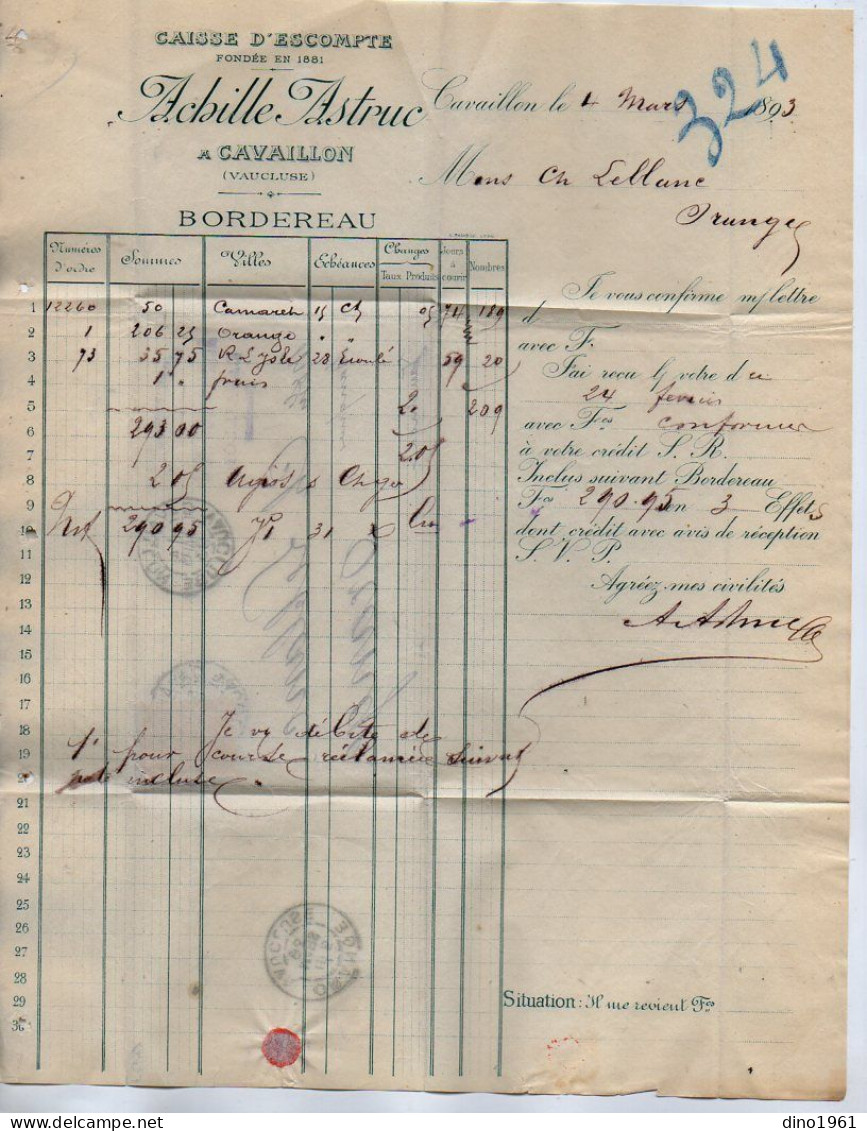 CAISSE D'ESCOMPTE
FONDÉE EN 1881
Achille Astruc
A CAVAILLON
(VAUCLUSE)
Cavaillon le 4 Mars 1893
324
Mons Ch Leblanc
Orange
BORDEREAU
Numéros d'ordre Sommes Villes Echéances Changes Taux Produits Jours à courir Nombres
1 12260 50 Camareh 15 Ct 05 74 189
2 1 206 25 Orange " "
3 73 35 75 R L Isle 28 Ecoulé 59 20
4 1 " frais
5 2. 209
6 293 00
7 2.05
8 2 05 Agios & Change
9
10 Net 290 95 31
11
12
13
14
15
16
17
18 Je vs débite de
19 1' pour course réclamée suivt
20 incluse.
21
22
23
24
25
26
27
28
29
30
Je vous confirme m/ lettre
d
avec F.
J'ai reçu l/ votre du
24 fevrier
avec Fcs conformer
à votre crédit S. R.
Inclus suivant Bordereau
Fcs 290.95 en 3 Effets
dont crédit avec avis de réception
S. V. P.
Agréez mes civilités
A. Astruc
ORANGE
VAUCLUSE
Situation: Il me revient Fcs
dino1961